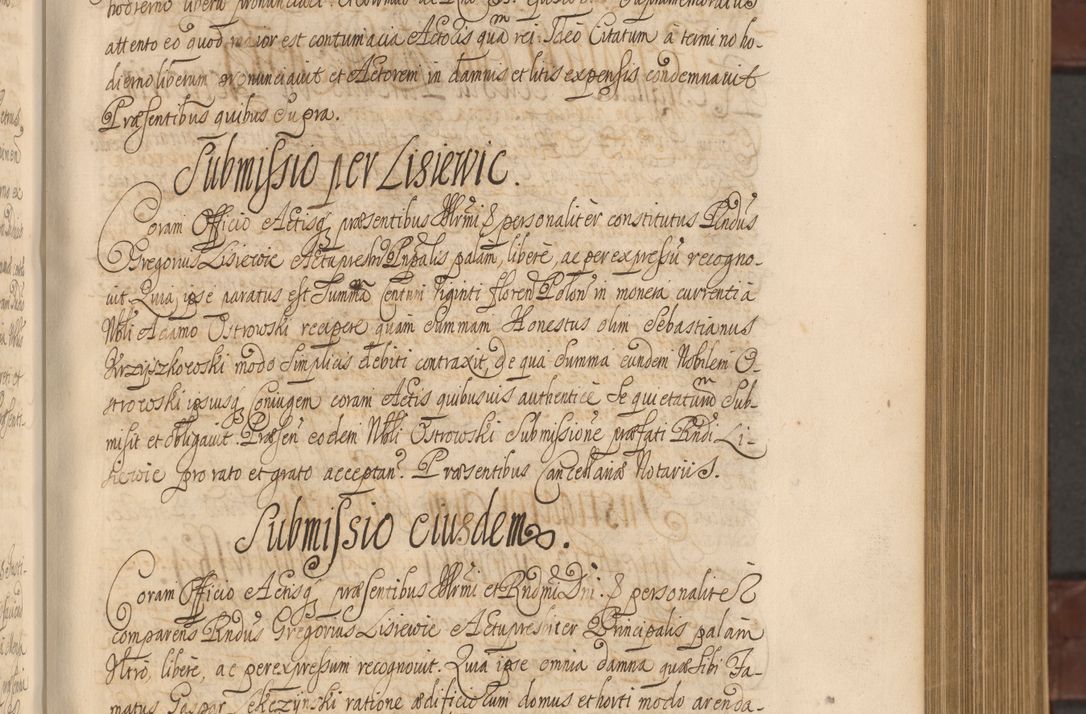 attento eo quod maior est contumacia Actoris quam rei. Ideo Citatum a termino ho-
dierno liberum pronunciavit et Actorem in damnis et litis expensis condemnavit
Præsentibus quibus supra.
Submissio per Lisiewic.
Coram Officio Actisq præsentibus Illrmi & personaliter constitutus Rndus
Gregorius Lisiewic Actu presbr Prnpalis palam, libere, ac per expressu recogno-
vit. Quia ipse paratus est Summa Centum Viginti floren Polon in moneta currenti a
Nbli Adamo Ostrowski recipere quam Summam Honestus olim Sebastianus
Krzyszkowski modo simplicis debiti contraxit, de qua Summa eundem Nobilem O-
strowski ipsiusq Coniugem coram Actis quibusvis authentice Se quietaturum Sub-
misit et obligavit. Præsen eodem Nbli Ostrowski Submissione præfati Rndi Li-
siewic pro rato et grato acceptan. Præsentibus Cancellariæ Notariis.
Submissio eiusdem.
Coram Officio Actisq præsentibus Illrmi et Rndmi Dni. & personaliter
comparens Rndus Gregorius Lisiewic Actu presbiter Principalis palam
libere, ac per expressum recognovit. Quia ipse omnia damna quæ sibi Fa-
matus Gaspar Sekczynski ratione ædificiorum domus et horti modo arenda-